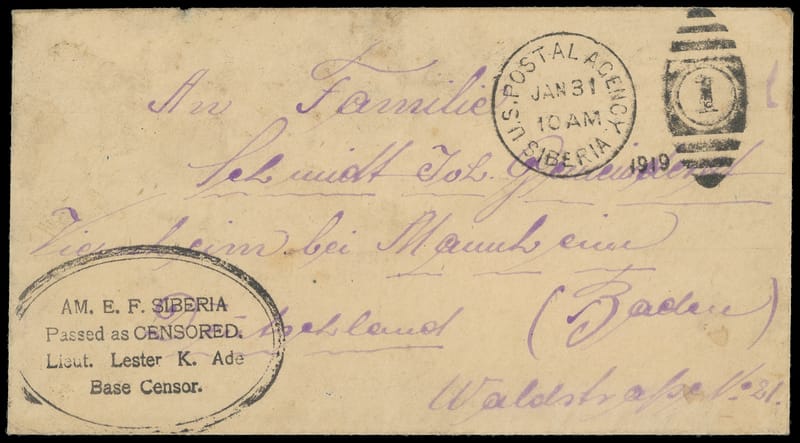 U.S. POSTAL AGENCY
JAN 31
10 AM
SIBERIA
1919
1
An Familie
Schmidt Joh. Gemeinderat
Viernheim bei Mannheim
Deutschland (Baden)
Waldstraße No 21.
AM. E. F. SIBERIA
Passed as CENSORED.
Lieut. Lester K. Ade
Base Censor.